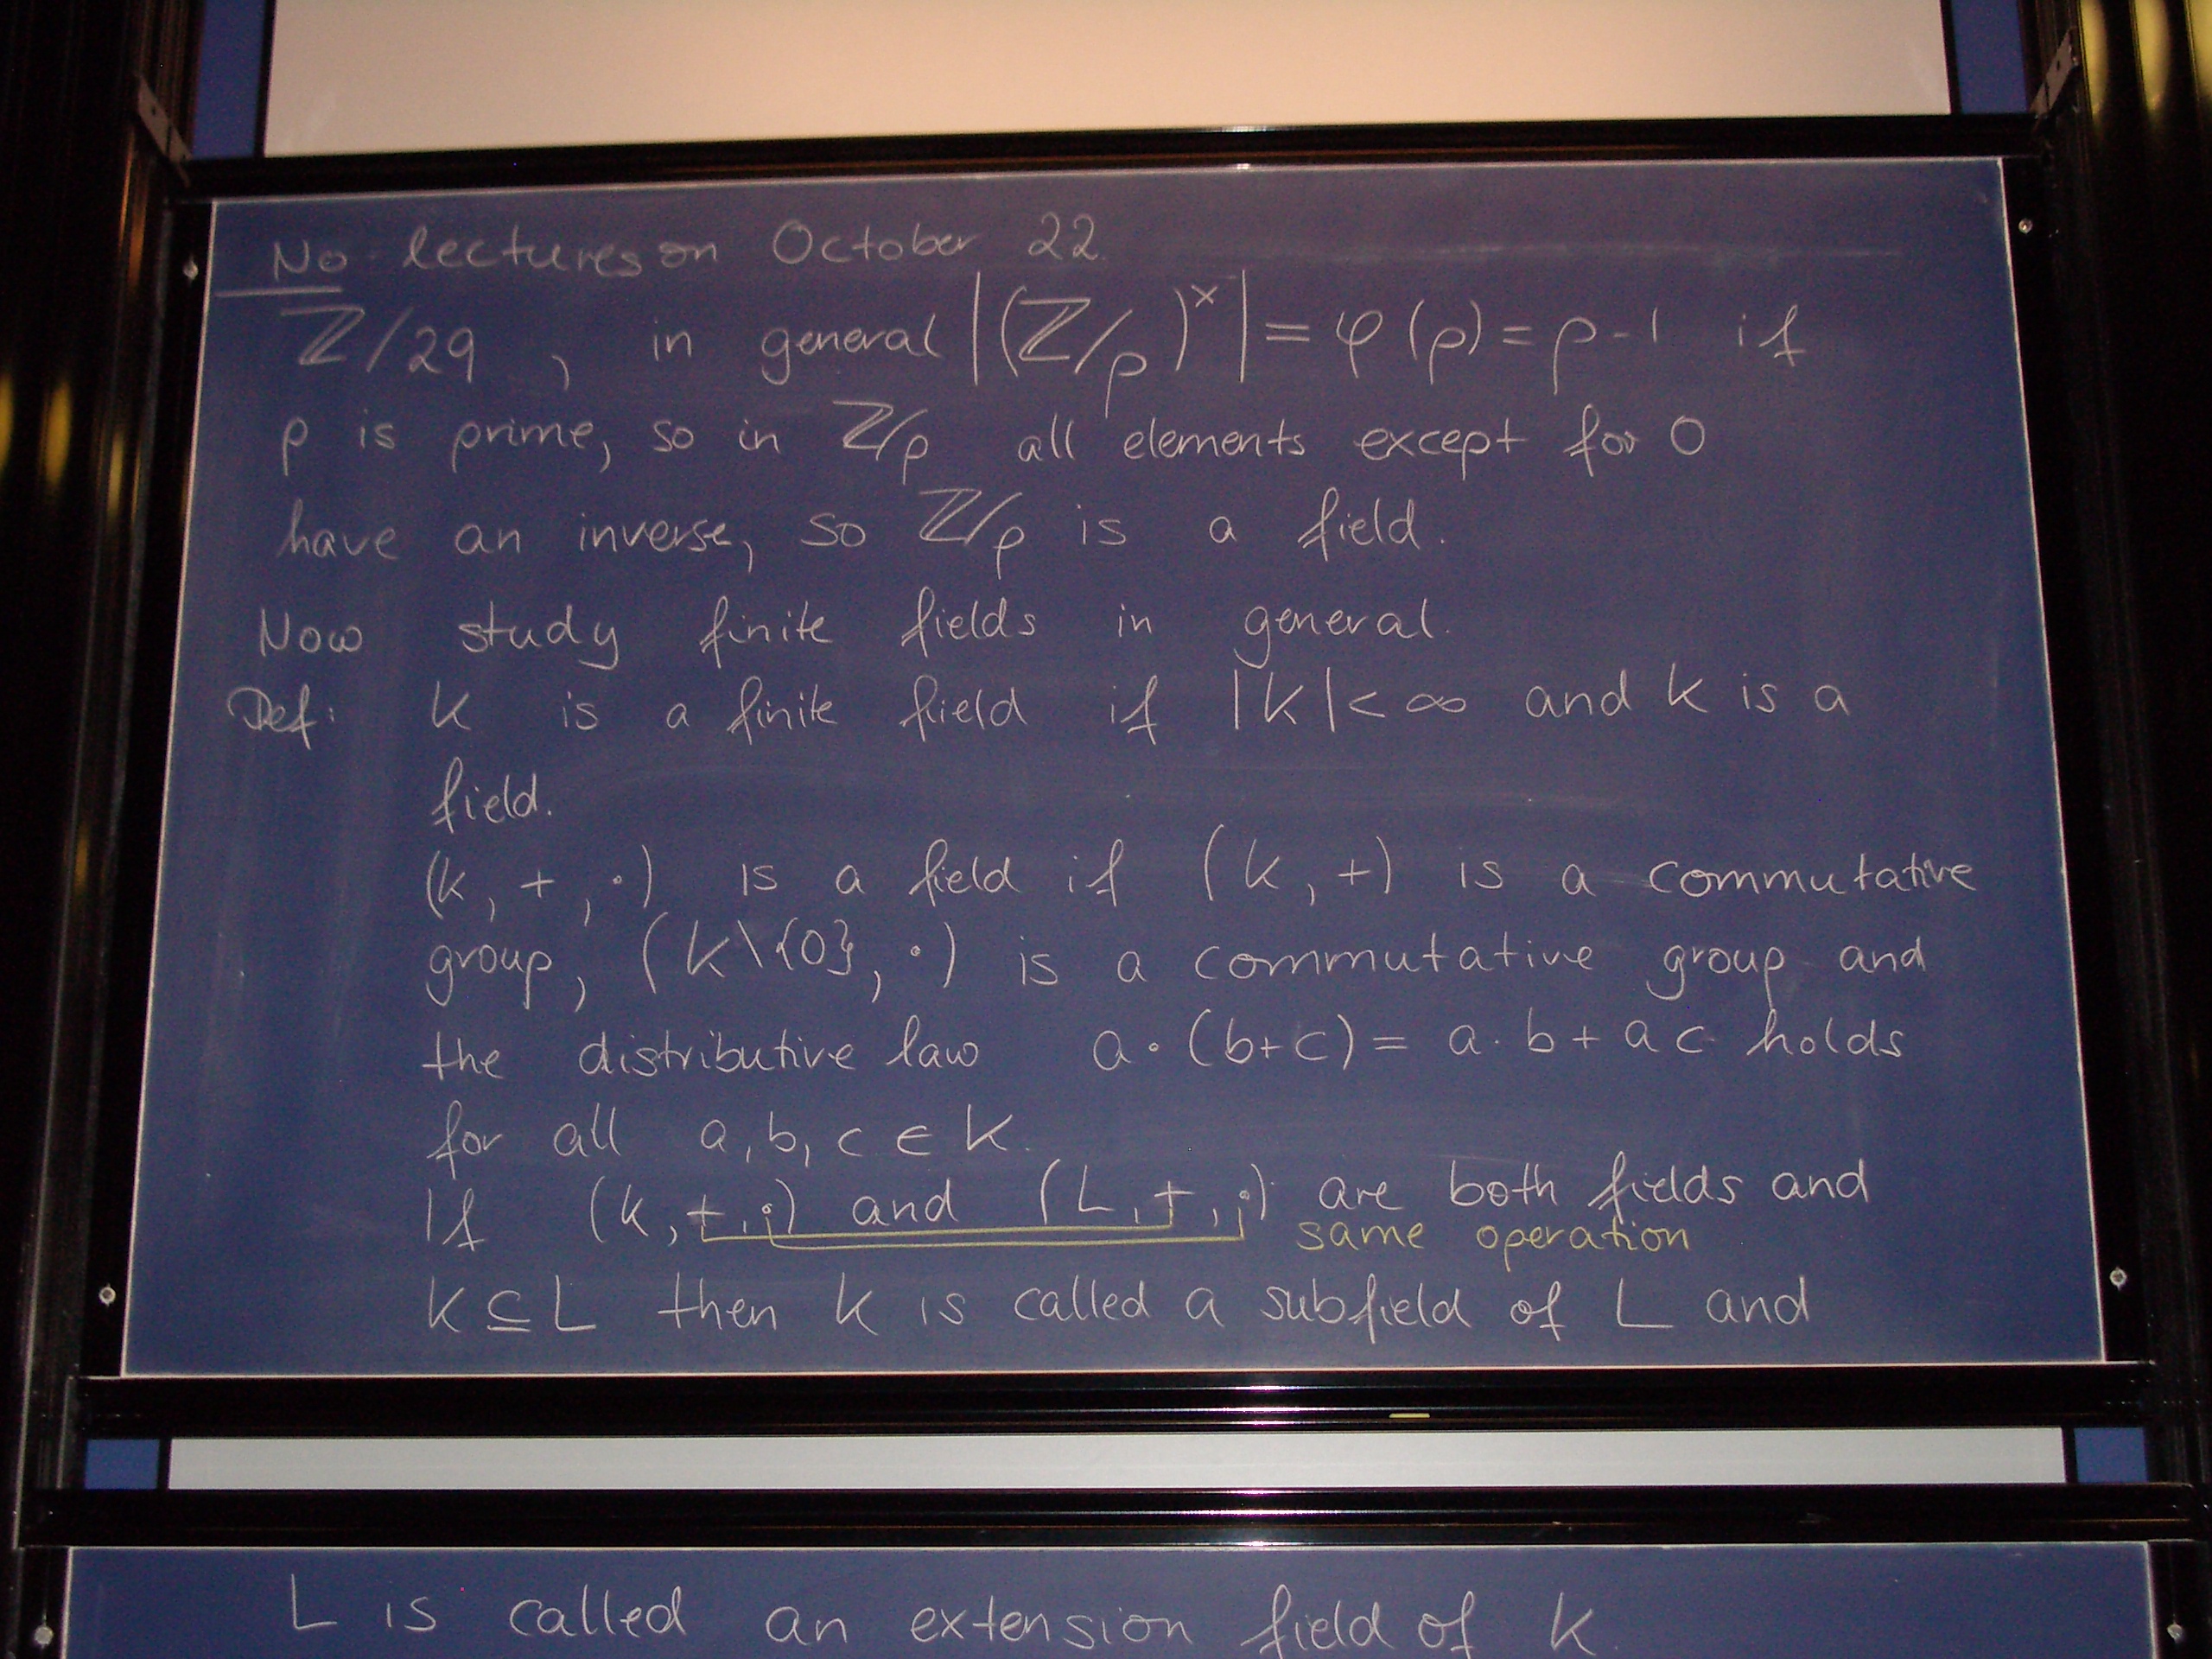 No lectures on October 22.
ℤ/29, in general |(ℤ/p)^×| = φ(p) = p-1 if
p is prime, so in ℤ/p all elements except for 0
have an inverse, so ℤ/p is a field.
Now study finite fields in general.
Def: K is a finite field if |K| < ∞ and K is a
field.
(K, +, ·) is a field if (K, +) is a commutative
group, (K\{0}, ·) is a commutative group and
the distributive law a·(b+c) = a·b + ac holds
for all a, b, c ∈ K.
If (K, +, ·) and (L, +, ·) are both fields and
same operation
K ⊆ L then K is called a subfield of L and
L is called an extension field of K.